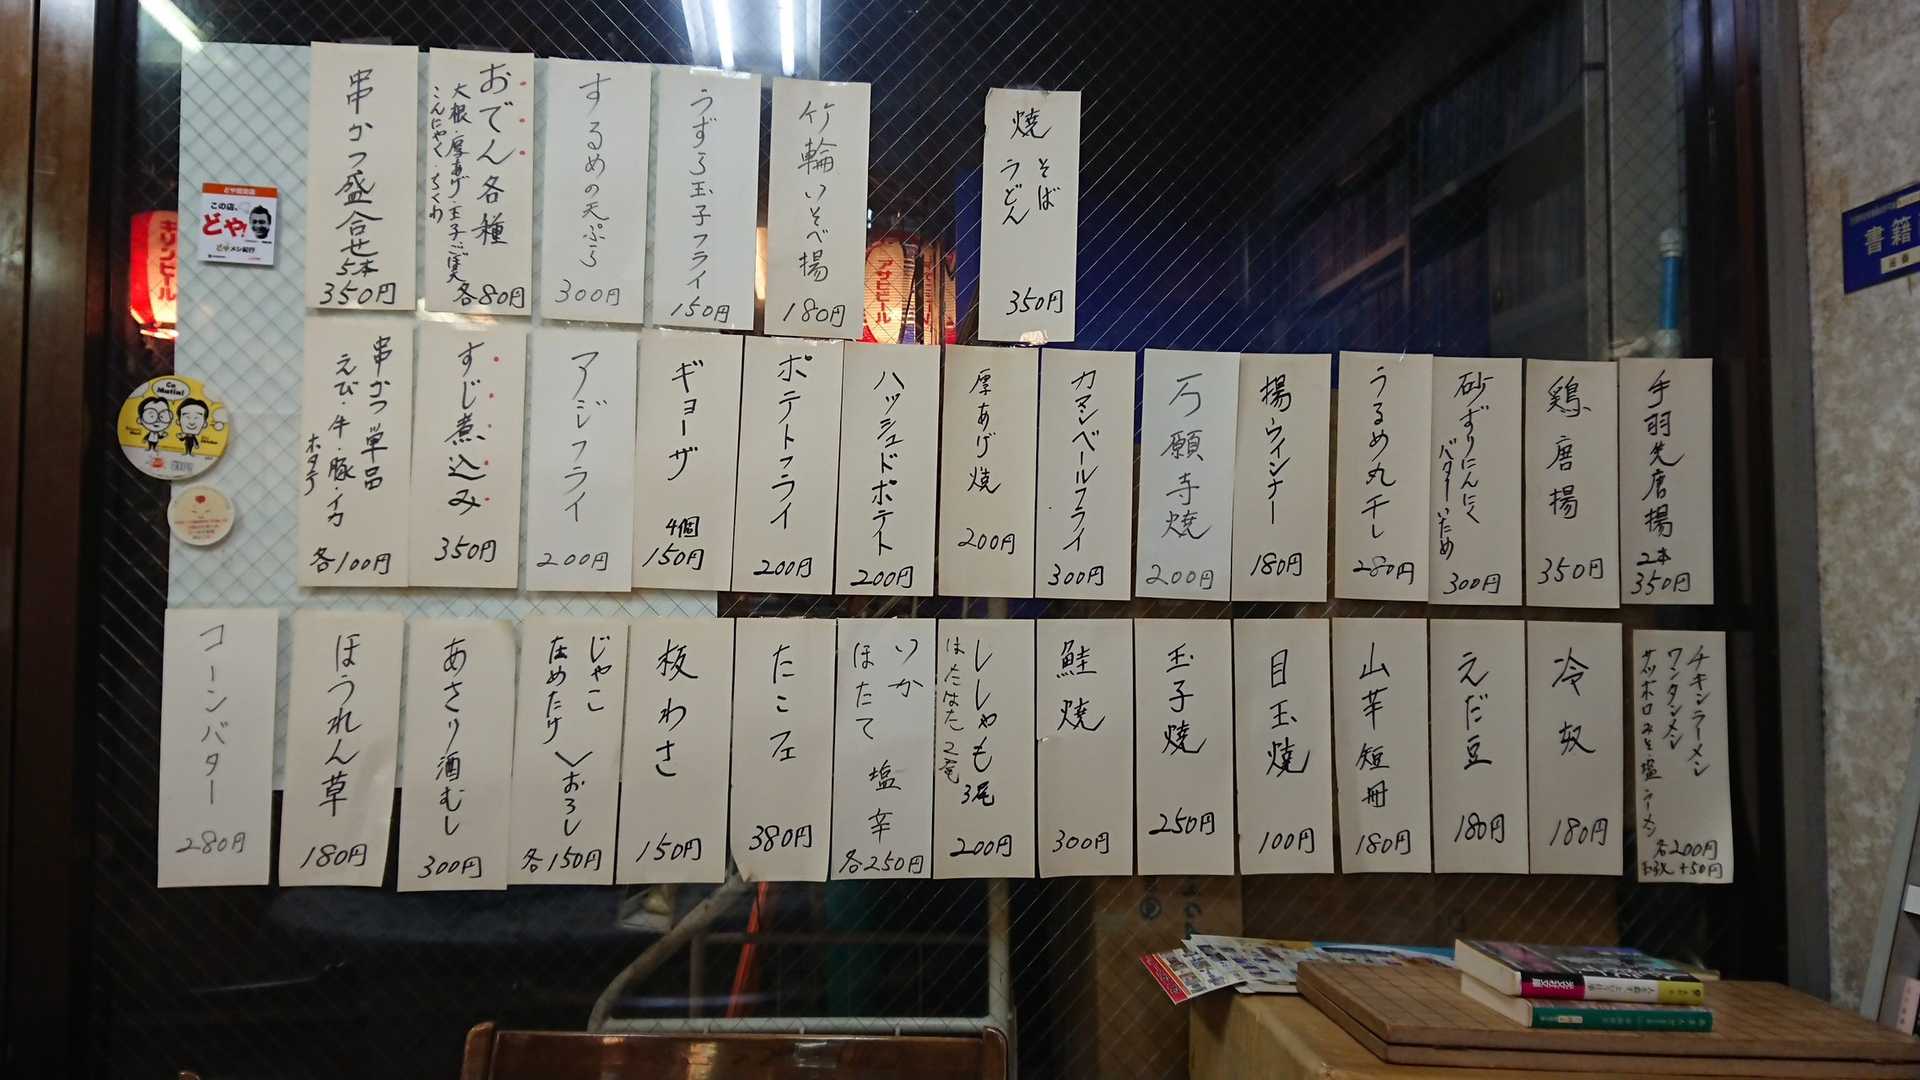 串かつ盛合せ
5本
350円
おでん各種
大根・厚あげ・玉子・ごぼ天
こんにゃく・ちくわ
各80円
するめの天ぷら
300円
うずら玉子フライ
150円
竹輪いそべ揚
180円
焼
そば
うどん
350円
串かつ単品
えび・牛・豚・イカ
ホタテ
各100円
すじ煮込み
350円
アジフライ
200円
ギョーザ
4個
150円
ポテトフライ
200円
ハッシュドポテト
200円
厚あげ焼
200円
カマンベールフライ
300円
万願寺焼
200円
揚ウィンナー
180円
うるめ丸干し
280円
砂ずりにんにく
バターいため
300円
鶏唐揚
350円
手羽先唐揚
2本
350円
コーンバター
280円
ほうれん草
180円
あさり酒むし
300円
じゃこ
なめたけ
おろし
各150円
板わさ
150円
たこフェ
380円
いか
ほたて
塩辛
各250円
ししゃも3尾
はたはた2尾
200円
鮭焼
300円
玉子焼
250円
目玉焼
100円
山芋短冊
180円
えだ豆
180円
冷奴
180円
チキンラーメン
ワンタンメン
サッポロみそ塩ラーメン
各200円
+50円
この店、
どや!
メシ紀行
キリンビール
アサヒビール
Co Motin!
書籍